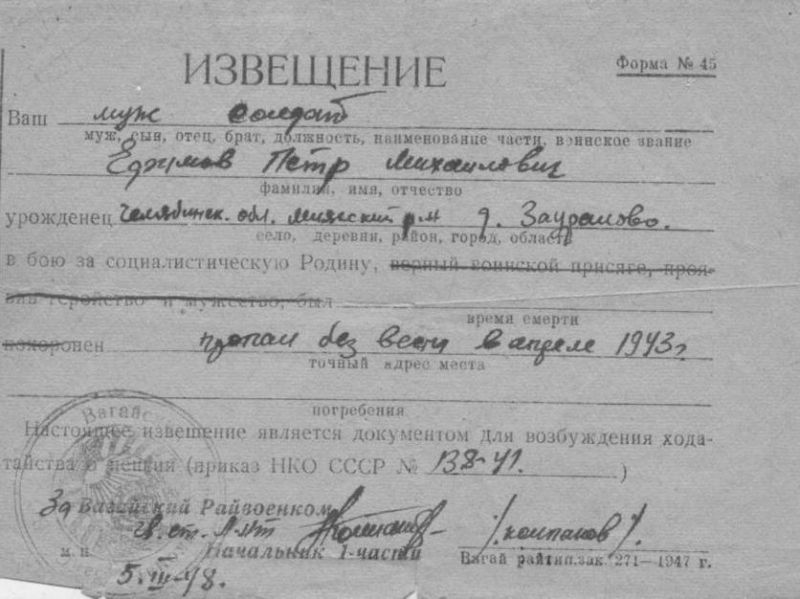 ИЗВЕЩЕНИЕ
Форма № 45
Ваш муж солдат
муж, сын, отец, брат, должность, наименование части, воинское звание
Ефимов Петр Михайлович
фамилия, имя, отчество
урожденец Челябинск. обл. р-н д. Заураново.
село, деревня, район, город, область
в бою за социалистическую Родину, верный воинской присяге, проя-
вив геройство и мужество, был
время смерти
похоронен пропал без вести в апреле 1943 г
точный адрес места
погребения
Настоящее извещение является документом для возбуждения хода-
тайства о пенсии (приказ НКО СССР № 138-41.)
За Вагайский Райвоенком
гв. ст. л-нт /Колпаков/.
м. п. Начальник 1-части
Вагай райтип. зак. 271—1947 г.
5.III-48.
Вагайс